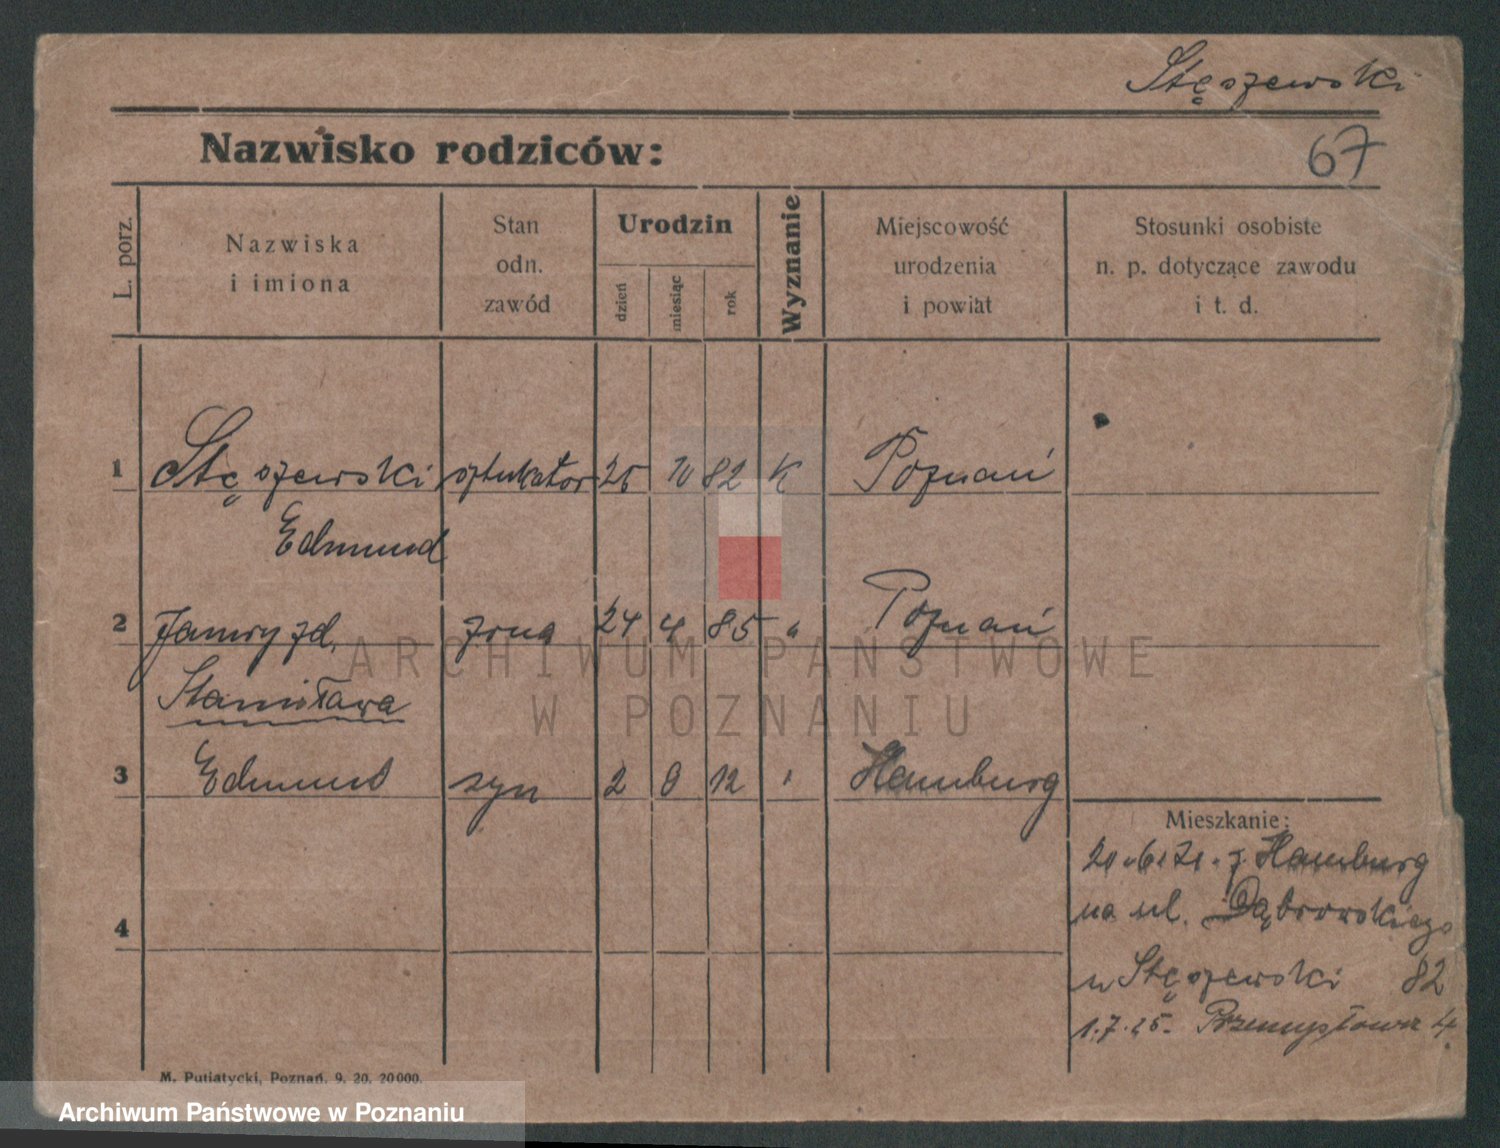 Stęszewski
67
Nazwisko rodziców:
L. porz.
Nazwiska
i imiona
Stan
odn.
zawód
Urodzin
dzień
miesiąc
rok
Wyznanie
Miejscowość
urodzenia
i powiat
Stosunki osobiste
n. p. dotyczące zawodu
i t. d.
1 Stęszewski sztukator 25 10 82 K Poznań
Edmund
2 żona 24 4 85 " Poznań
Stanisława
3 Edmund syn 2 12 " Hamburg
Mieszkanie:
20.6.21. z Hamburg
na ul. Dąbrowskiego
u Stęszewski 82
1.7.25. Przemysłowa 4.
4
M. Putiatycki, Poznań. 9. 20. 20000.
ARCHIWUM PAŃSTWOWE
W POZNANIU
Archiwum Państwowe w Poznaniu